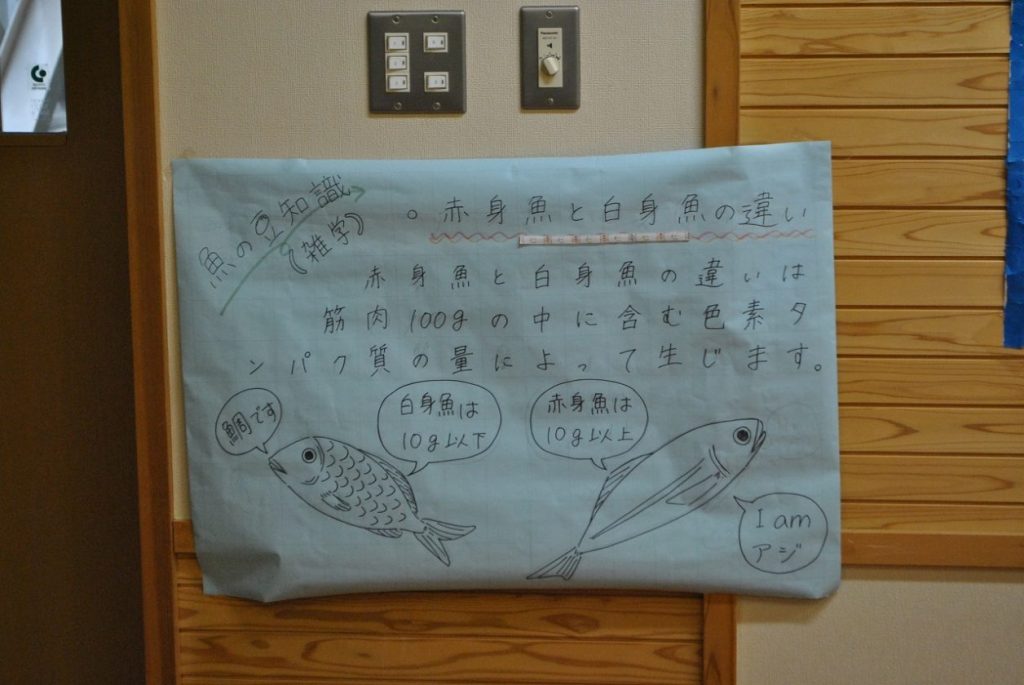 魚の豆知識
(雑学)
。赤身魚と白身魚の違い
赤身魚と白身魚の違いは
筋肉100gの中に含む色素タ
ンパク質の量によって生じます。
鯛です
白身魚は
10g以下
赤身魚は
10g以上
I am
アジ
Panasonic